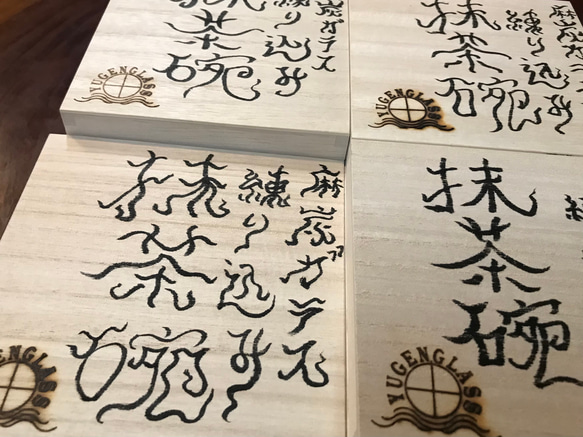 炭ガラス
り込み
茶碗
YUGENGLASS
麻炭
練り込み
抹茶碗
YUGENGLASS
麻炭ガラス
練り込み
抹茶碗
YUGENGLASS
抹茶碗
YUGENGLASS